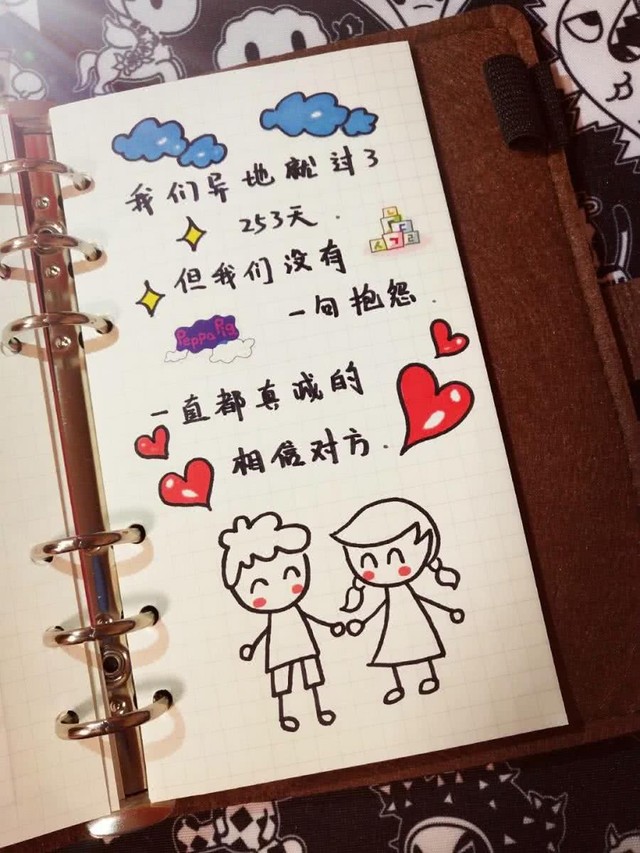 我们异地就过了
253天.
但我们没有
一句抱怨.
Peppa Pig
一直都真诚的
相信对方.